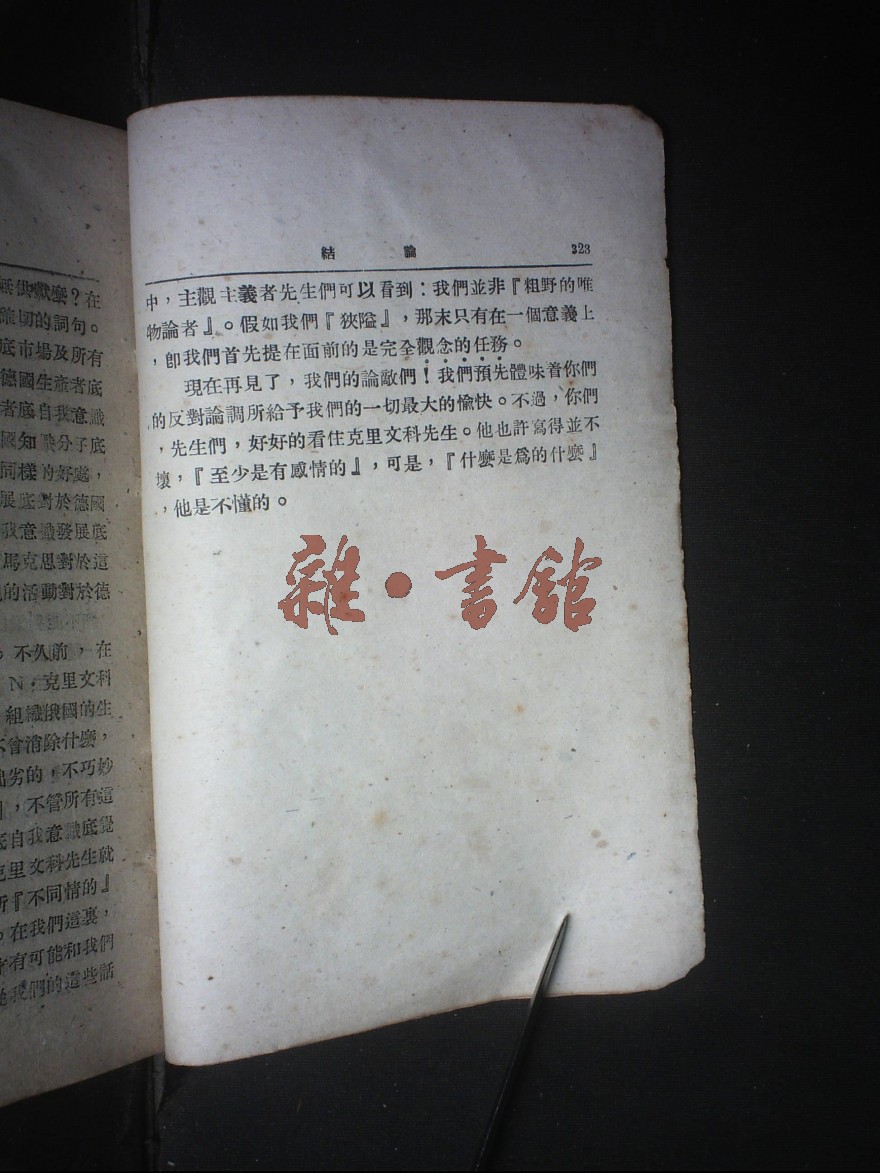 無供獻麼?在
確切的詞句。
底市場及所有
德國生產者底
者底自我意識
國知識分子底
同樣的好處,
展底對於德國
我意識發展底
馬克思對於這
的活動對於德
不久前,在
N·克里文科
組織俄國的生
不曾消除什麼,
劣的,不巧妙
,不管所有這
自我意識底覺
克里文科先生就
所『不同情的』
。在我們這裏,
有可能和我們
我們的這些話
結論 323
中,主觀主義者先生們可以看到:我們並非『粗野的唯
物論者』。假如我們『狹隘』,那末只有在一個意義上
,卽我們首先提在面前的是完全觀念的任務。
現在再見了,我們的論敵們!我們預先體味着你們
的反對論調所給予我們的一切最大的愉快。不過,你們
,先生們,好好的看住克里文科先生。他也許寫得並不
壞,『至少是有感情的』,可是,『什麼是爲的什麼』
,他是不懂的。
雜·書館